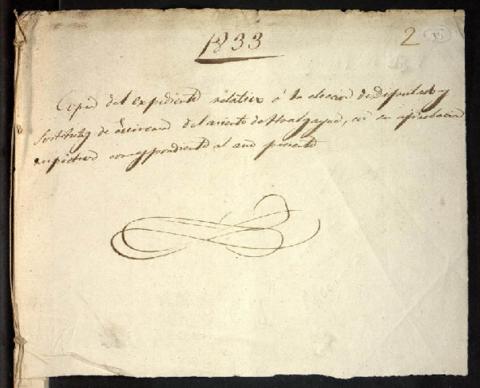 1833
2
Copia del expediente relativo á la eleccion de diputado y
Sustituto de mineria del asiento de Hualgayoc, con su aprobacion
respectiva correspondiente al año presente